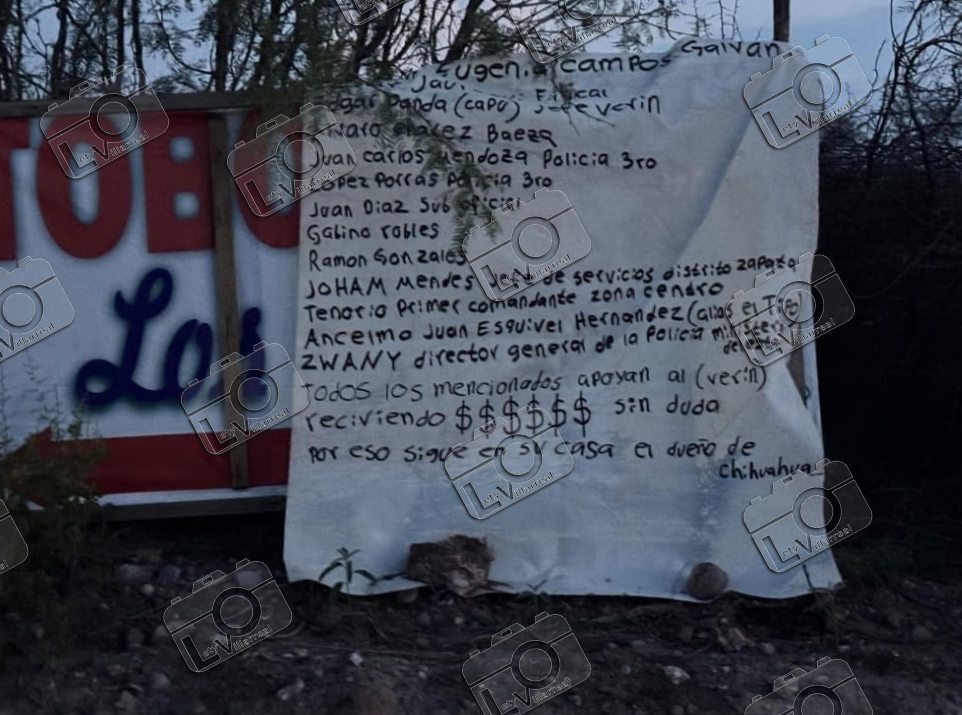 Eugenia campos Galván
Javi Fiscal
Panda (capu) Jefe verin
Alvaro Chavez Baeza
Juan carlos Mendoza Policia 3ro
Lopez Porras Policia 3ro
Juan Diaz Sub oficial
Gabino robles
Ramon Gonzales
JOHAM Mendes de servicios distrito zapata
Tenorio Primer comandante zona cendro
Ancelmo Juan Esquivel Hernandez (alias el Tigo)
ZWANY director general de la Policia
TODOS los mencionados apoyan al (verin)
reciviendo $$$$$$ sin duda
por eso sigue en su casa el dueño de
chihuahua
TOBO
Los
LV LetyVillarreal